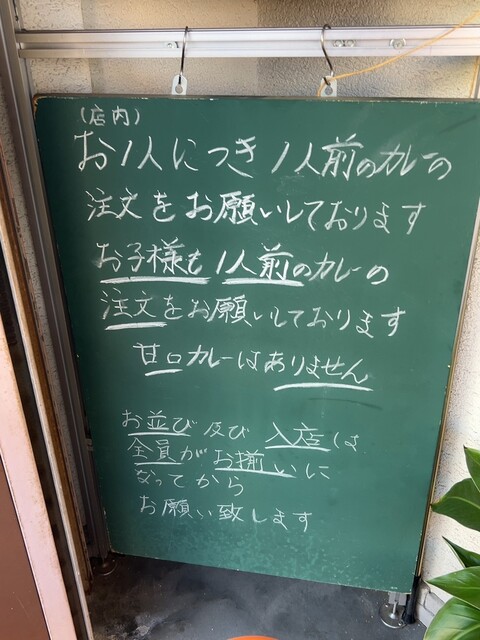 (店内)
お1人につき1人前のカレーの
注文をお願いしております
お子様も1人前のカレーの
注文をお願いしております
甘口カレーはありません
お並び及び入店は
全員がお揃いに
なってから
お願い致します